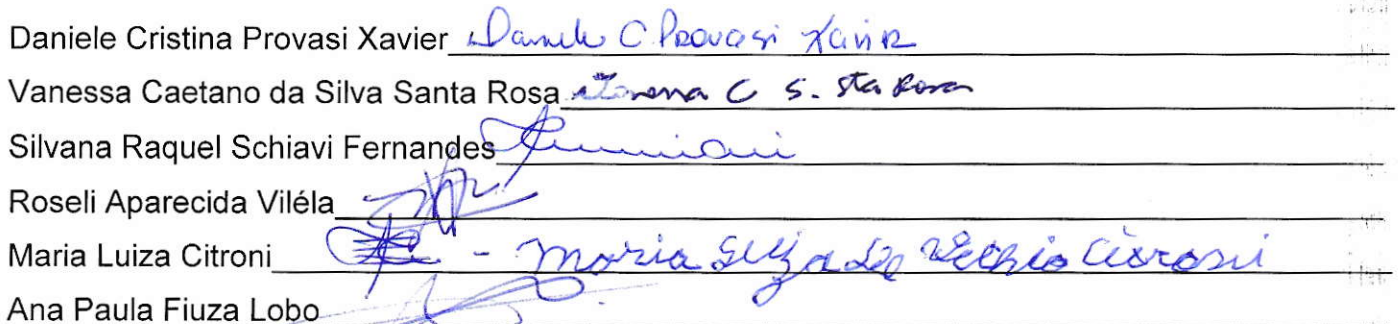 Daniele Cristina Provasi Xavier Daniele C Provasi Xavier
Vanessa Caetano da Silva Santa Rosa C S. Sta Rosa
Silvana Raquel Schiavi Fernandes
Roseli Aparecida Viléla
Maria Luiza Citroni - Maria Luiza
Ana Paula Fiuza Lobo